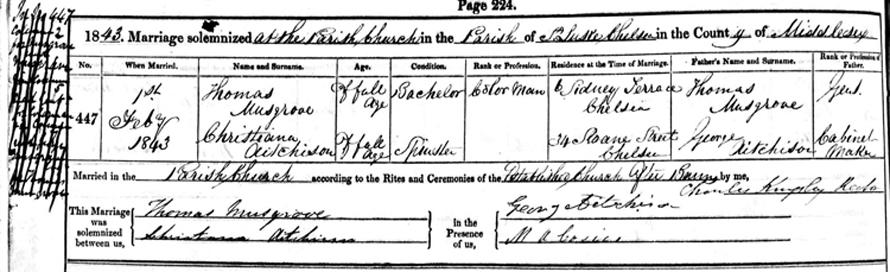 Page 224.
1843. Marriage solemnized at the Parish Church in the Parish of St Luke Chelsea in the County of Middlesex
No. When Married. Name and Surname. Age. Condition. Rank or Profession. Residence at the Time of Marriage. Father's Name and Surname. Rank or Profession of Father.
447 1st Feby 1843 Thomas Musgrove Of full Age Bachelor Color Man 6 Sidney Terrace Chelsea Thomas Musgrove Gent.
Christiana Aitchison Of full Age Spinster 34 Sloane Street Chelsea George Aitchison Cabinet Maker
Married in the Parish Church according to the Rites and Ceremonies of the Established Church After Banns by me,
Charles Kingsley Rector
This Marriage was solemnized between us, Thomas Musgrove in the Presence of us, George Aitchison
Christiana Aitchison M A